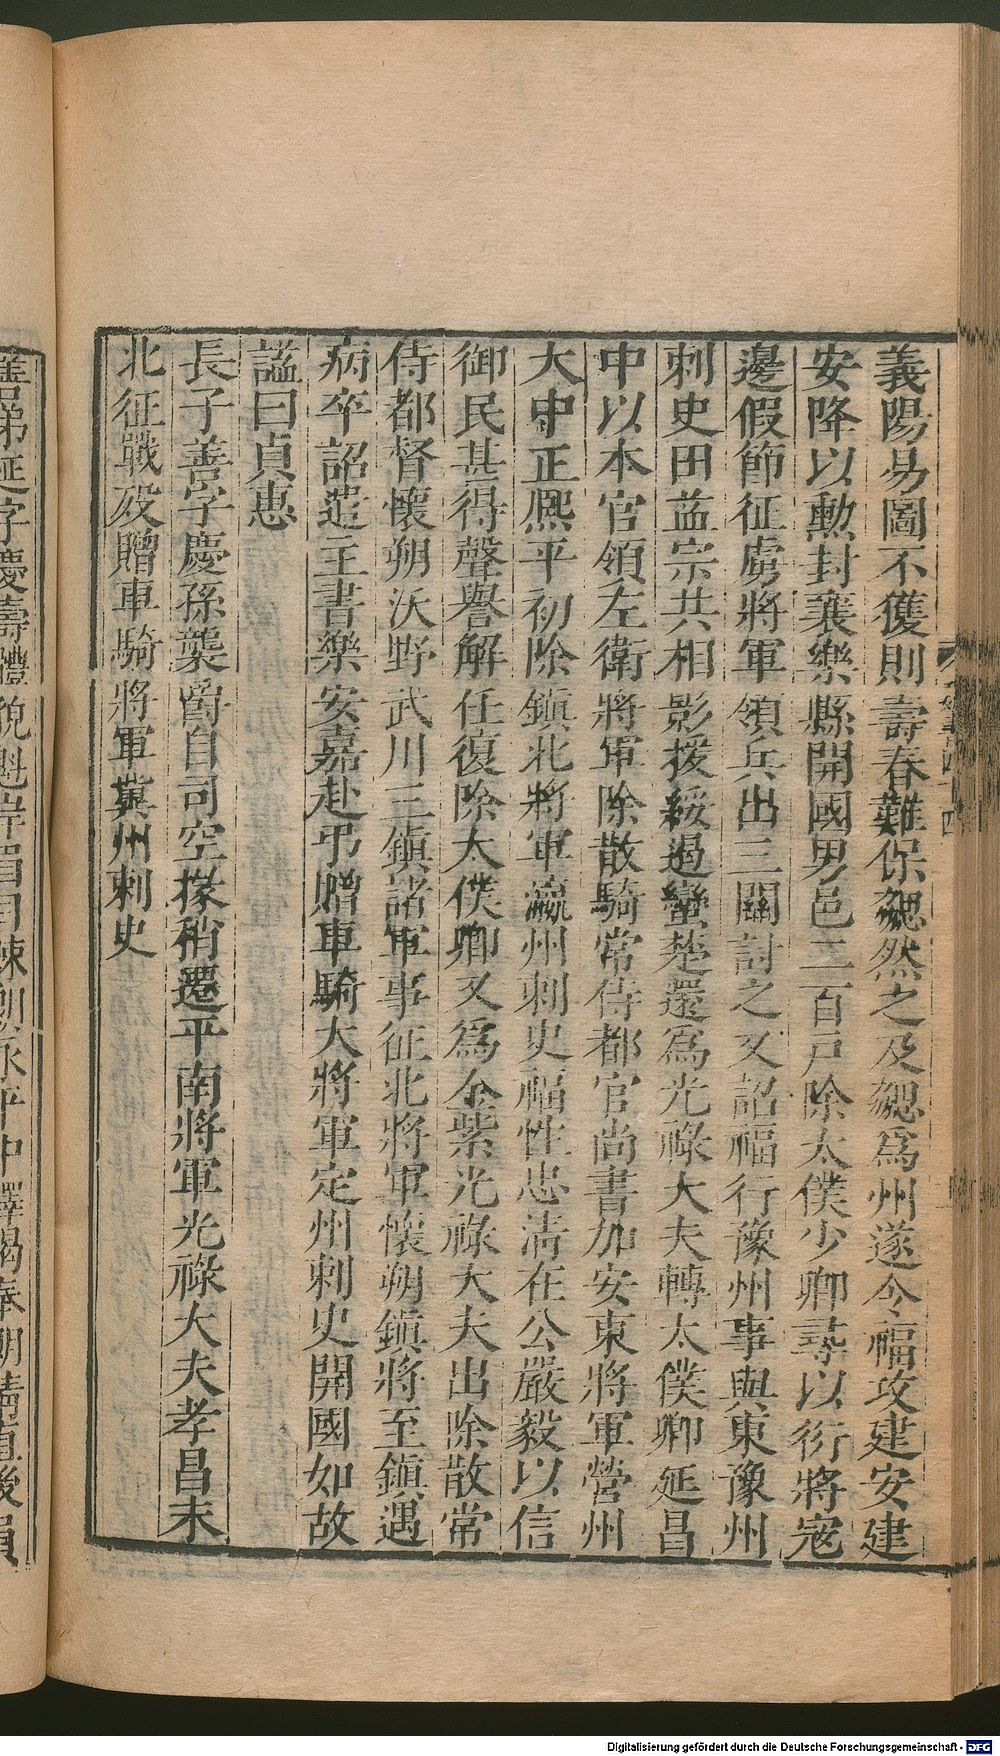 義陽易圖不獲則壽春難保勰然之及勰爲州遂令福攻建安建
安降以勲封襄樂縣開國男邑二百戸除太僕少卿尋以衍將寇
邊假節征虜將軍領兵出三關討之又詔福行豫州事與東豫州
刺史田益宗共相影援綏遏蠻楚還爲光祿大夫轉太僕卿延昌
中以本官領左衛將軍除散騎常侍都官尚書加安東將軍營州
大中正熙平初除鎮北將軍瀛州刺史福性忠清在公嚴毅以信
御民甚得聲譽解任復除太僕卿又爲金紫光祿大夫出除散常
侍都督懷朔沃野武川三鎮諸軍事征北將軍懷朔鎮將至鎮遇
病卒詔遣主書樂安嘉赴弔贈車騎大將軍定州刺史開國如故
諡曰貞惠
長子善字慶孫襲爵自司空掾稍遷平南將軍光祿大夫孝昌末
北征戰歿贈車騎將軍冀州刺史
善弟延字慶壽體貌魁岸眉目疎朗永平中釋褐奉朝請直後員
Digitalisierung gefördert durch die Deutsche Forschungsgemeinschaft - DFG